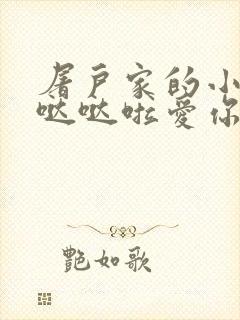 屠户家的小
哒哒啦爱你
艳如歌